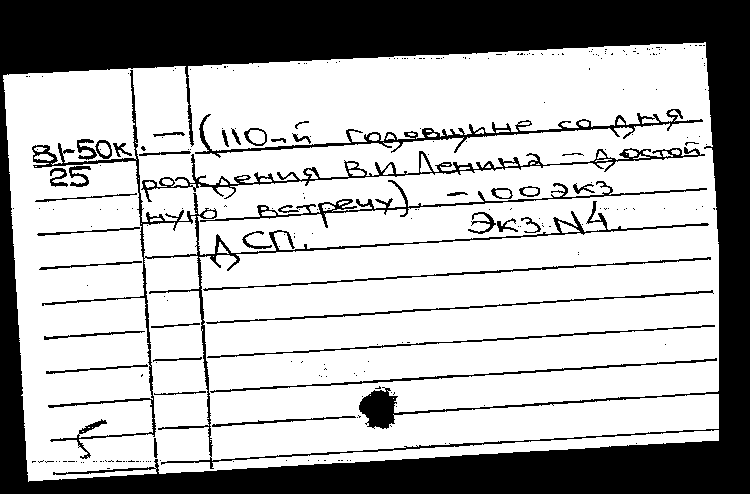 — (110-й годовщине со дня
81-50к.
25
рождения В.И. Ленина – достой-
ную встречу). – 100 экз
ДСП. Экз. N4.